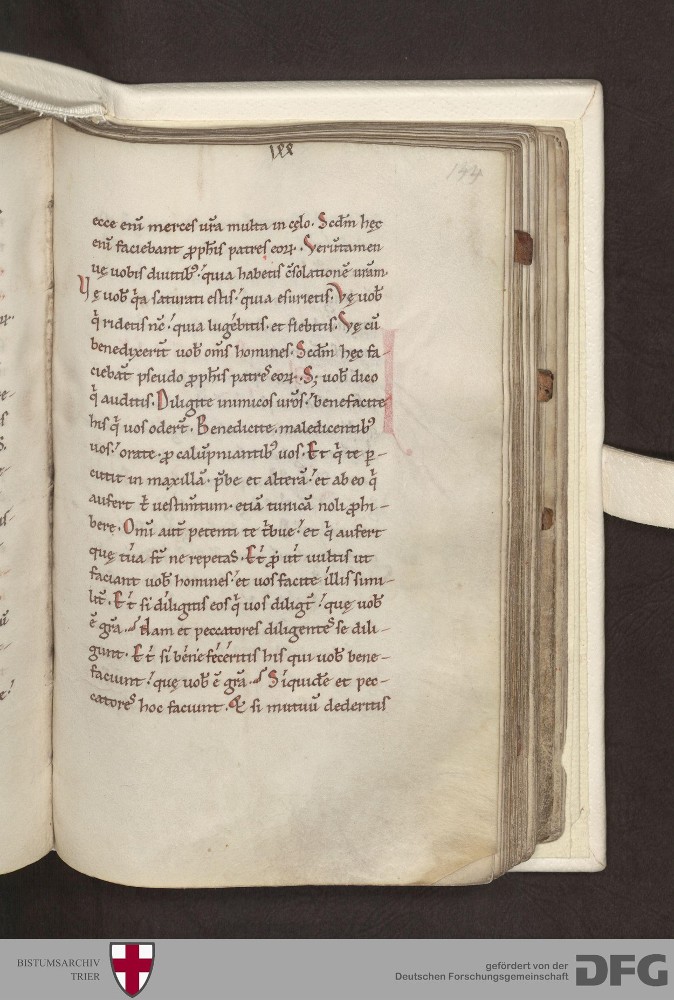 lxx
144
ecce enī merces ur̄a multa in cęlo. Scdm̄ hęc
enī faciebant p̱ph̄is patres eoꝝ. Verūtamen
uę uobis diuitibꝰ! quia habetis ↄ̄solationē uram̄.
Vę uob̄ q̄a saturati estis! quia esurietis. Vę uob̄
q̄ ridetis nc̄! quia lugębitis. et flebitis. Vę cū
benedixerīt uob̄ om̄s homines. Scdm̄ hęc fa-
ciebāt pseudo p̱ph̄is patres eoꝝ. S; uob̄ dico
q̄ auditis. Diligite inimicos uros̄! benefacite
his q̄ uos oder̄t. Benedicite. maledicentibꝰ
uos! orate. p̱ calūpniantibꝰ uos. Et q̄ te p̱-
cutit in maxillā. p̄be et alterā! et ab eo q̄
aufert t̄ uestim̄tum. etiā tunicā noli p̱hi-
bere. Omī aut̄ petenti te t̄bue! et q̄ aufert
quę tua st̄ ne repetas. Et p̱ ut uultis ut
faciant uob̄ homines! et uos facite illis simi-
lit̄. Et si diligitis eos q̄ uos diligt̄! quę uob̄
ē gr̄a. Nam et peccatores diligentes se dili-
gunt. Et si bene feceritis his qui uob̄ bene-
faciunt! quę uob̄ ē gr̄a. Siquidē et pec-
catores hoc faciunt. Et si mutuū dederitis
BISTUMSARCHIV
TRIER
gefördert von der
Deutschen Forschungsgemeinschaft
DFG